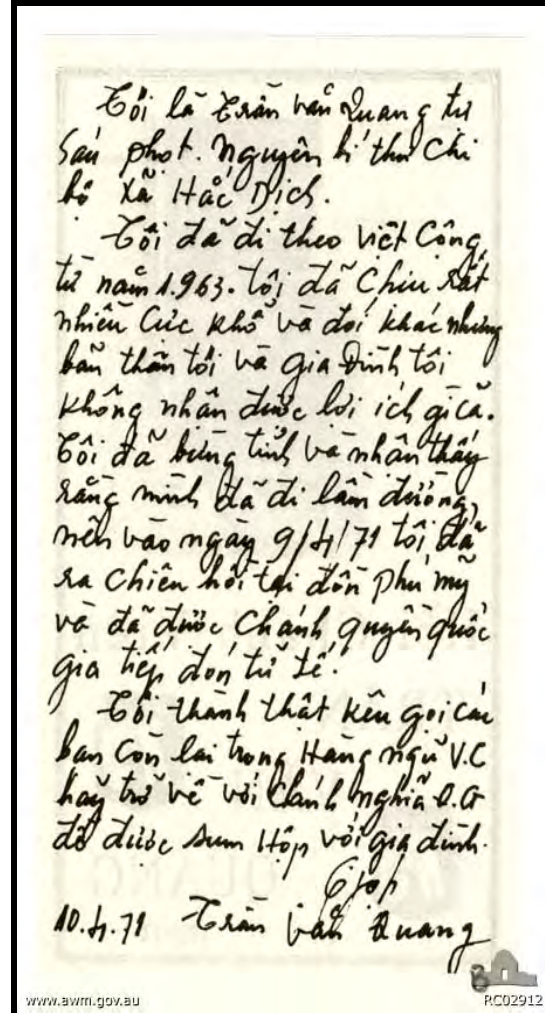 Tôi là Trần văn Quang tư
Sáu phot. Nguyên bí thư Chi
bộ Xã Hắc Dịch.
Tôi đã đi theo Việt Cộng
từ năm 1.963. tôi đã Chịu rất
nhiều Cực khổ và đói khác nhưng
bản thân tôi và gia Đình tôi
không nhân được lợi ích gì cả.
Tôi đã bừng tỉnh và nhân thấy
rằng mình đã đi lầm đường,
nên vào ngày 9/4/71 tôi đã
ra Chiêu hồi tại đồn phú mỹ
và đã được Chánh quyền quốc
gia tiếp đón tử tế.
Tôi thành thật kêu gọi các
bạn Còn lại trong Hàng ngũ V.C
hãy trở về với Chánh Nghĩa Q.G
để được sum Hôp với gia đình.
10.4.71 Trần văn Quang
8
www.awm.gov.au
RC02912